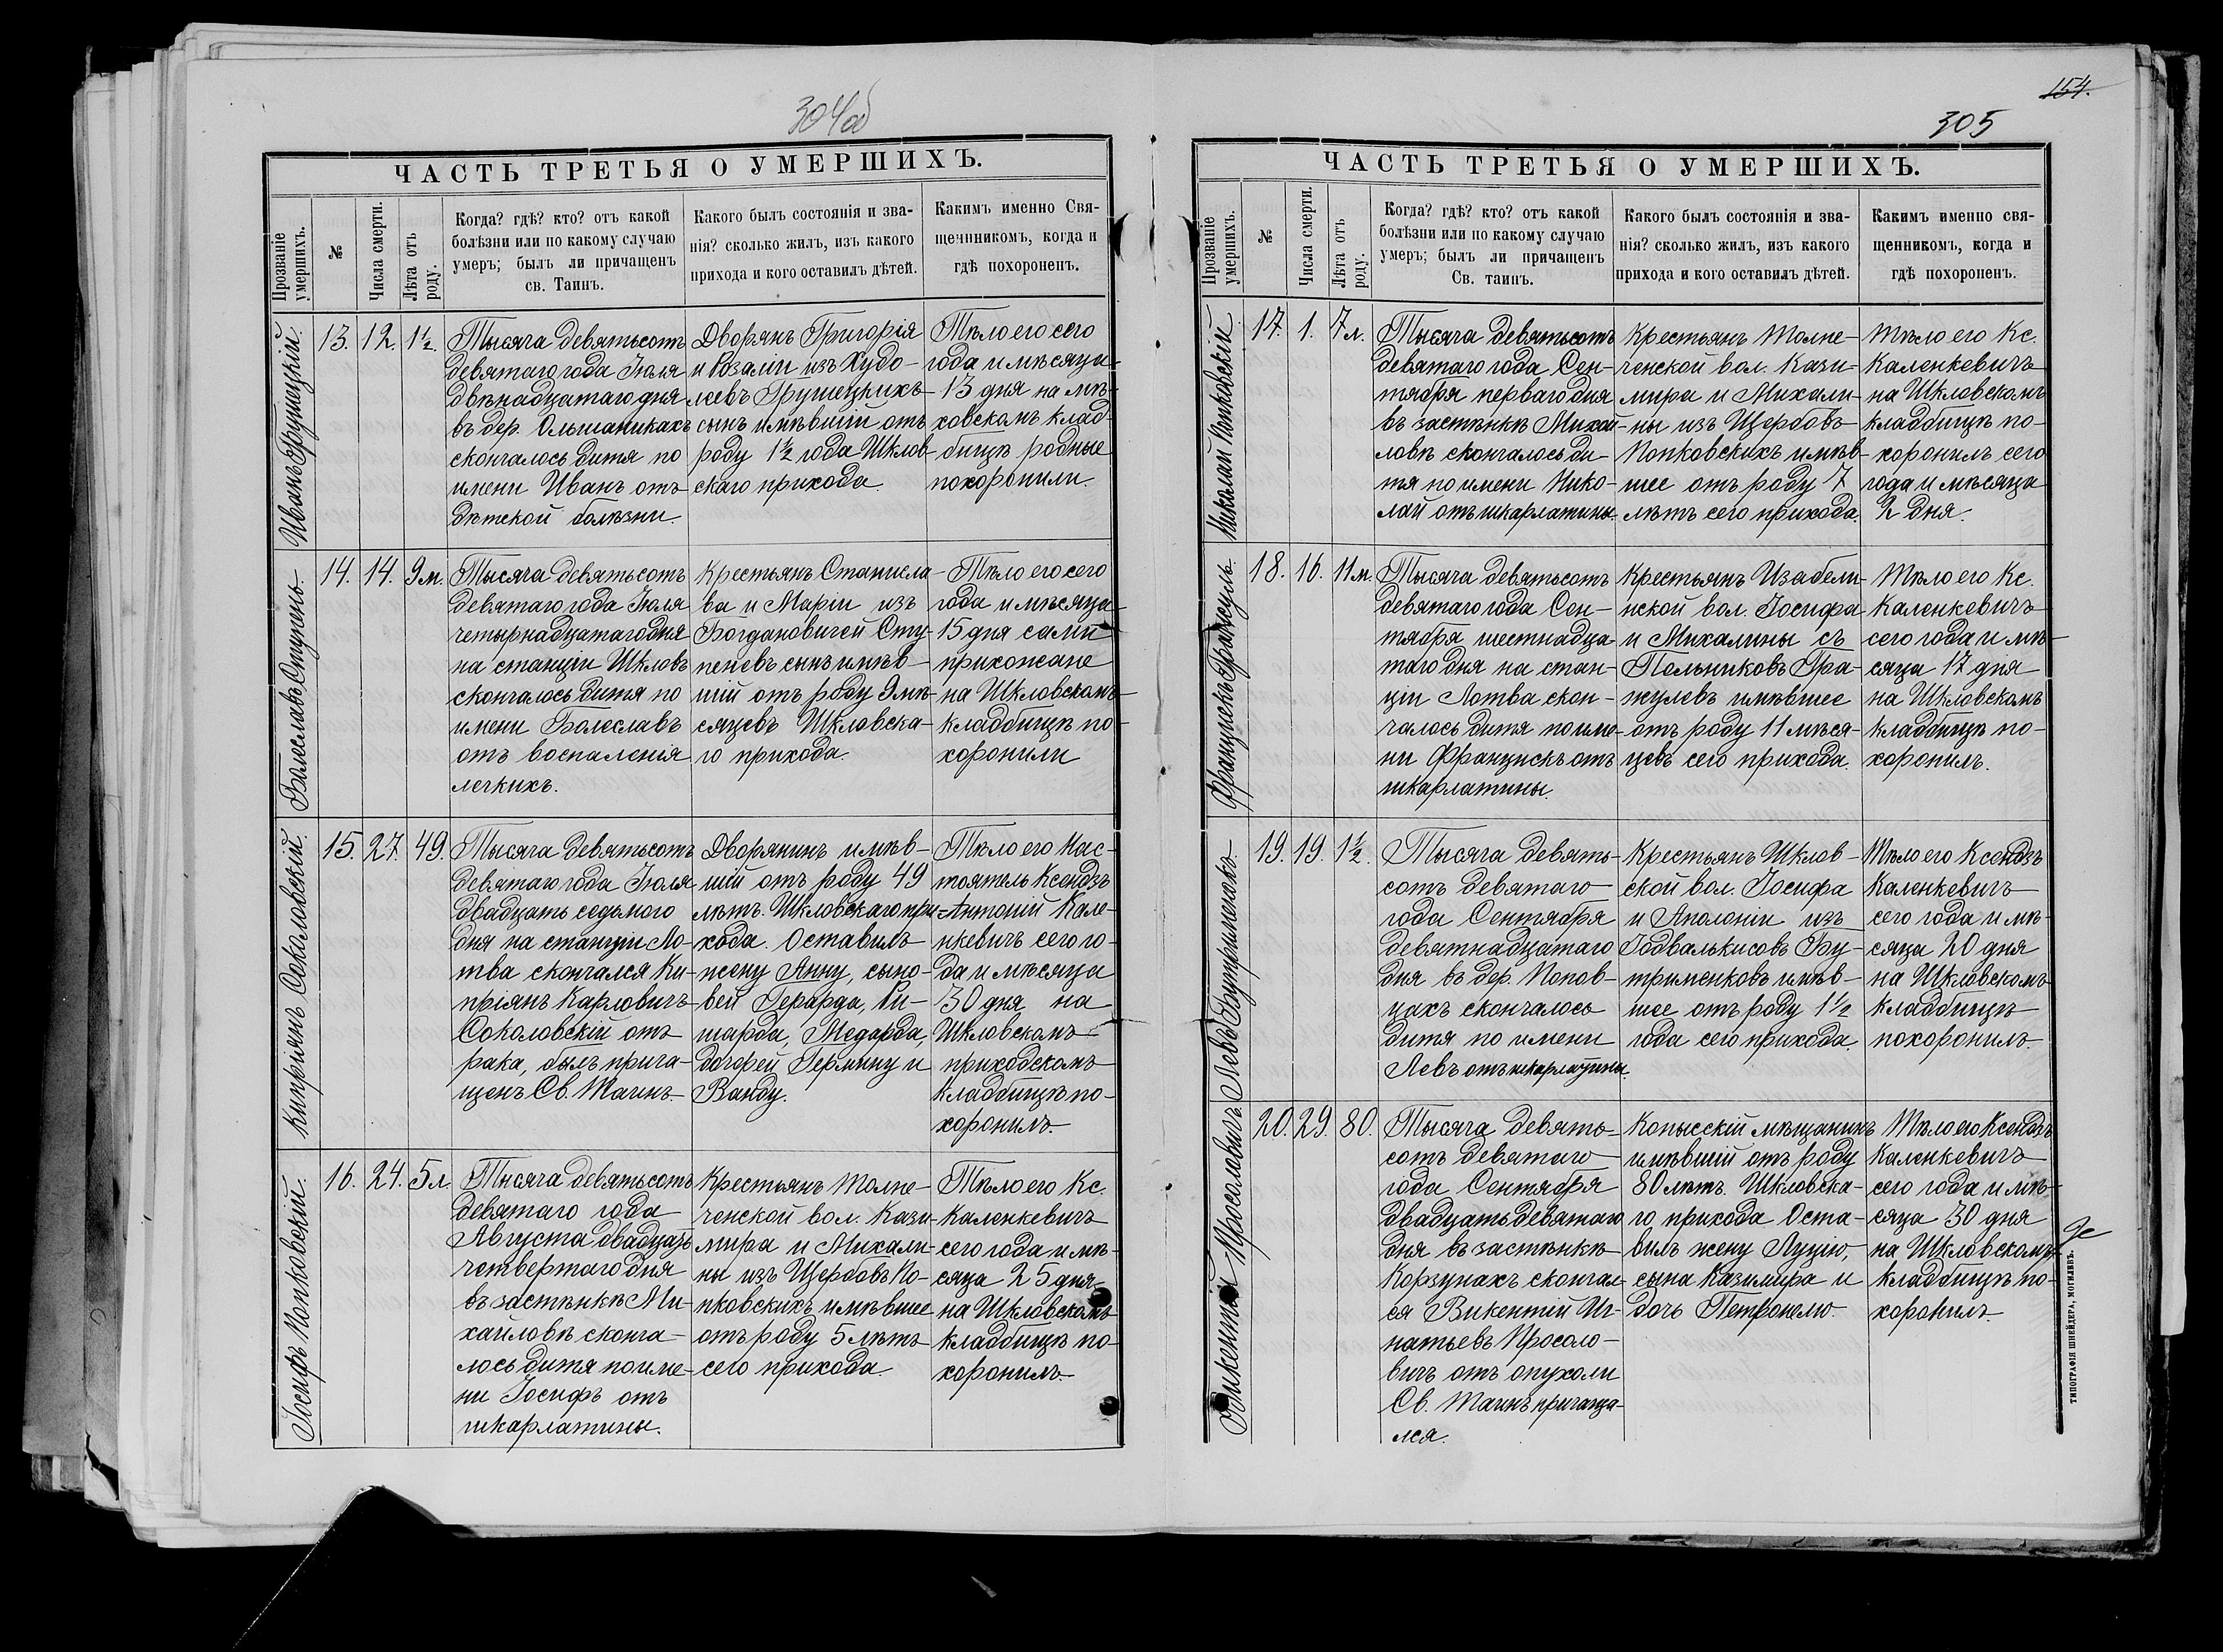 304об
ЧАСТЬ ТРЕТЬЯ О УМЕРШИХЪ.
Прозваніе умершихъ.
№
Числа смерти.
Лѣта отъ роду.
Когда? гдѣ? кто? отъ какой
болѣзни или по какому случаю
умеръ; былъ ли причащенъ
св. Таинъ.
Какого былъ состоянія и зва-
нія? сколько жилъ, изъ какого
прихода и кого оставилъ дѣтей.
Какимъ именно Свя-
щенникомъ, когда и
гдѣ похороненъ.
Иванъ Грушецкій.
13.
12.
1½.
Тысяча девятьсотъ
девятаго года Іюля
двѣнадцатаго дня
въ дер. Ольшаникахъ
скончалось дитя по
имени Иванъ отъ
дѣтской болѣзни.
Дворянъ Григорія
и Розаліи изъ Худо-
леевъ Грушецкихъ
сынъ имѣвшій отъ
роду 1½ года Шклов-
скаго прихода.
Тѣло его сего
года и мѣсяца
13 дня на мѣ-
ховскомъ клад-
бищѣ родные
похоронили.
Болеславъ Ступень.
14.
14.
9 м.
Тысяча девятьсотъ
девятаго года Іюля
четырнадцатаго дня
на станціи Шкловъ
скончалось дитя по
имени Болеславъ
отъ воспаленія
легкихъ.
Крестьянъ Станисла-
ва и Маріи изъ
Богдановичей Сту-
пеневъ сынъ имѣв-
шій отъ роду 9 мѣ-
сяцевъ Шкловска-
го прихода.
Тѣло его сего
года и мѣсяца
15 дня сами
прихожане
на Шкловскомъ
кладбищѣ по-
хоронили
Кипріянъ Соколовскій.
15.
27.
49.
Тысяча девятьсотъ
девятаго года Іюля
двадцать седьмого
дня на станціи Ло-
тва скончался Ки-
пріянъ Карловичъ
Соколовскій отъ
рака, былъ прича-
щенъ Св. Таинъ.
Дворянинъ имѣв-
шій отъ роду 49
лѣтъ. Шкловскаго при-
хода. Оставилъ
жену Анну, сыно-
вей Герарда, Ри-
шарда, Медарда,
дочерей Гермину и
Ванду.
Тѣло его Нас-
тоятель Ксендзъ
Антоній Кале-
нкевичъ сего го-
да и мѣсяца
30 дня на
Шкловскомъ
приходскомъ
кладбищѣ по-
хоронилъ.
Іосифъ Попковскій.
16.
24.
5 л.
Тысяча девятьсотъ
девятаго года
Августа двадцать
четвертаго дня
въ застѣнкѣ Ми-
хайловѣ сконча-
лось дитя по име-
ни Іосифъ отъ
шкарлатины.
Крестьянъ Толпе-
ченской вол. Кази-
мира и Михали-
ны изъ Щербовъ По-
пковскихъ имѣвшее
отъ роду 5 лѣтъ
сего прихода.
Тѣло его Кс.
Каленкевичъ
сего года и мѣ-
сяца 25 дня
на Шкловскомъ
кладбищѣ по-
хоронилъ.
154.
305
ЧАСТЬ ТРЕТЬЯ О УМЕРШИХЪ.
Прозваніе умершихъ.
№
Числа смерти.
Лѣта отъ роду.
Когда? гдѣ? кто? отъ какой
болѣзни или по какому случаю
умеръ; былъ ли причащенъ
Св. таинъ.
Какого былъ состоянія и зва-
нія? сколько жилъ, изъ какого
прихода и кого оставилъ дѣтей.
Какимъ именно свя-
щенникомъ, когда и
гдѣ похороненъ.
Николай Попковскій
17.
1.
7 л.
Тысяча девятьсотъ
девятаго года Сен-
тября перваго дня
въ застѣнкѣ Михай-
ловѣ скончалось ди-
тя по имени Нико-
лай отъ шкарлатины.
Крестьянъ Толпе-
ченской вол. Кази-
мира и Михали-
ны изъ Щербовъ
Попковскихъ имѣв-
шее отъ роду 7
лѣтъ сего прихода.
Тѣло его Кс.
Каленкевичъ
на Шкловскомъ
кладбищѣ по-
хоронилъ сего
года и мѣсяца
2 дня.
Францискъ Гражуль.
18.
16.
11 м.
Тысяча девятьсотъ
девятаго года Сен-
тября шестнадца-
таго дня на стан-
ціи Лотва скон-
чалось дитя по име-
ни Францискъ отъ
шкарлатины.
Крестьянъ Изабели-
нской вол. Іосифа
и Михалины съ
Польниковъ Гра-
жулевъ имѣвшее
отъ роду 11 мѣся-
цевъ сего прихода.
Тѣло его Кс.
Каленкевичъ
сего года и мѣ-
сяца 17 дня
на Шкловскомъ
кладбищѣ по-
хоронилъ.
Левъ Бутрименокъ.
19.
19.
1½.
Тысяча девять-
сотъ девятаго
года Сентября
девятнадцатаго
дня въ дер. Попов-
цахъ скончалось
дитя по имени
Левъ отъ шкарлатины.
Крестьянъ Шклов-
ской вол. Іосифа
и Аполоніи изъ
Годвалькисовъ Бу-
трименковъ имѣв-
шее отъ роду 1½
года сего прихода.
Тѣло его Ксендзъ
Каленкевичъ
сего года и мѣ-
сяца 20 дня
на Шкловскомъ
кладбищѣ
похоронилъ.
Викентій Просоловичъ
20.
29.
80.
Тысяча девять-
сотъ девятаго
года Сентября
двадцать девятаго
дня въ застѣнкѣ
Корзунахъ скончал-
ся Викентій Иг-
натьевъ Просоло-
вичъ отъ опухоли
Св. Таинъ причаща-
лся.
Копысскій мѣщанинъ
имѣвшій отъ роду
80 лѣтъ. Шкловска-
го прихода Оста-
вилъ жену Луцію,
сына Казимира и
дочь Петронелю.
Тѣло его Ксендзъ
Каленкевичъ
сего года и мѣ-
сяца 30 дня
на Шкловскомъ
кладбищѣ по-
хоронилъ.
ТИПОГРАФІЯ ШНЕЙДЕРА, МОГИЛЕВЪ.